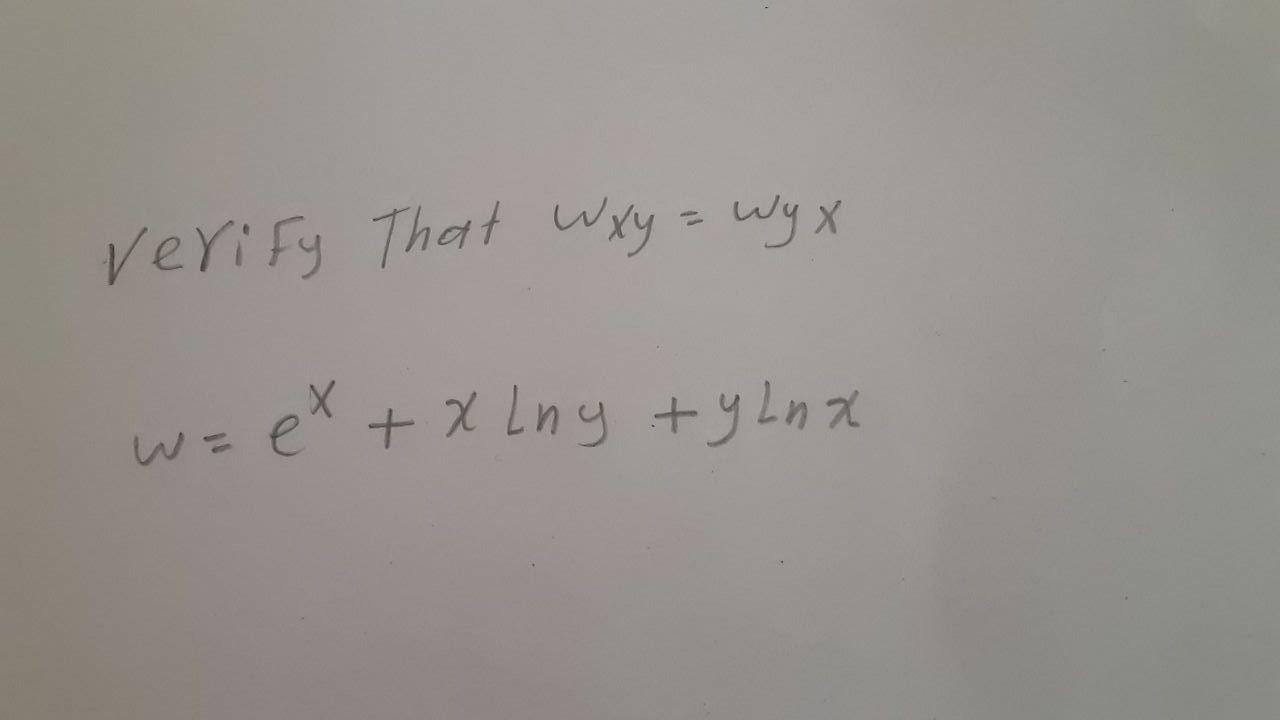 Verify That wxy = wyx
w = e^x + x Ln y + y Ln x